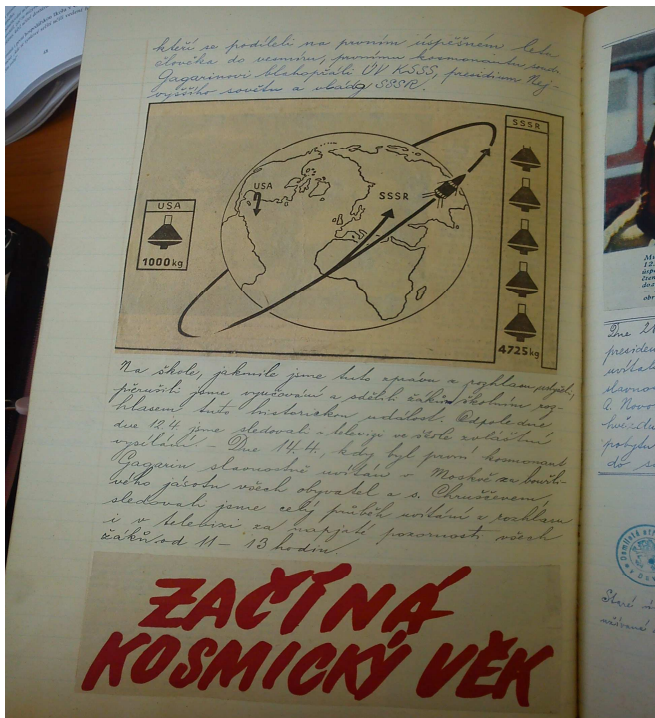 kteří se podíleli na prvním úspěšném letu
člověka do vesmíru, prvnímu kosmonautu
Gagarinovi blahopřáli ÚV KSSS, presidium Nej-
vyššího sovětu a vlády SSSR.
USA
1000 kg
USA
SSSR
SSSR
4725 kg
Na škole, jakmile jsme tuto zprávu z rozhlasu
přerušili jsme vyučování a sdělili žákům školním roz-
hlasem tuto historickou událost. Odpoledne
dne 12.4. jsme sledovali i televizi ve škole zvláštní
vysílání - Dne 14.4., kdy byl první kosmonaut
Gagarin slavnostně uvítán v Moskvě za bouřli-
vého jásotu všech obyvatel a s. Chruščevem,
sledovali jsme celý průběh uvítání z rozhlasu
i v televisi za napjaté pozornosti všech
žáků od 11 - 13 hodin.
ZAČÍNÁ
KOSMICKÝ VĚK
12.
obr
Dne
presiden
uvítal
slavnos
A. Novo
hvězdu
pobytu
do
Staré